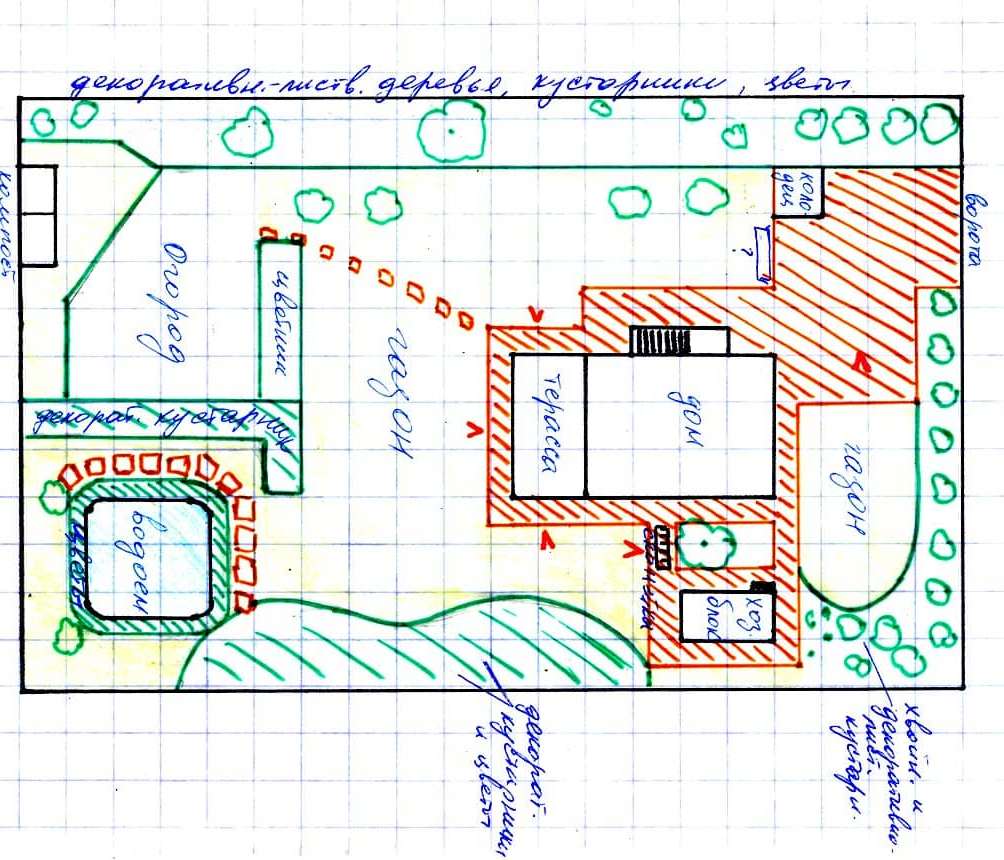 декоративн.-листв. деревья, кустарники, цветы
компост
Огород
цветник
газон
коло-
дец
?
ворота
терасса
дом
газон
декорат. кустарник
водоем
цветы
скамья
хоз.
блок
декорат.
кустарники
и цветы
хвойн. и
декоративно-
лист.
кустарн.